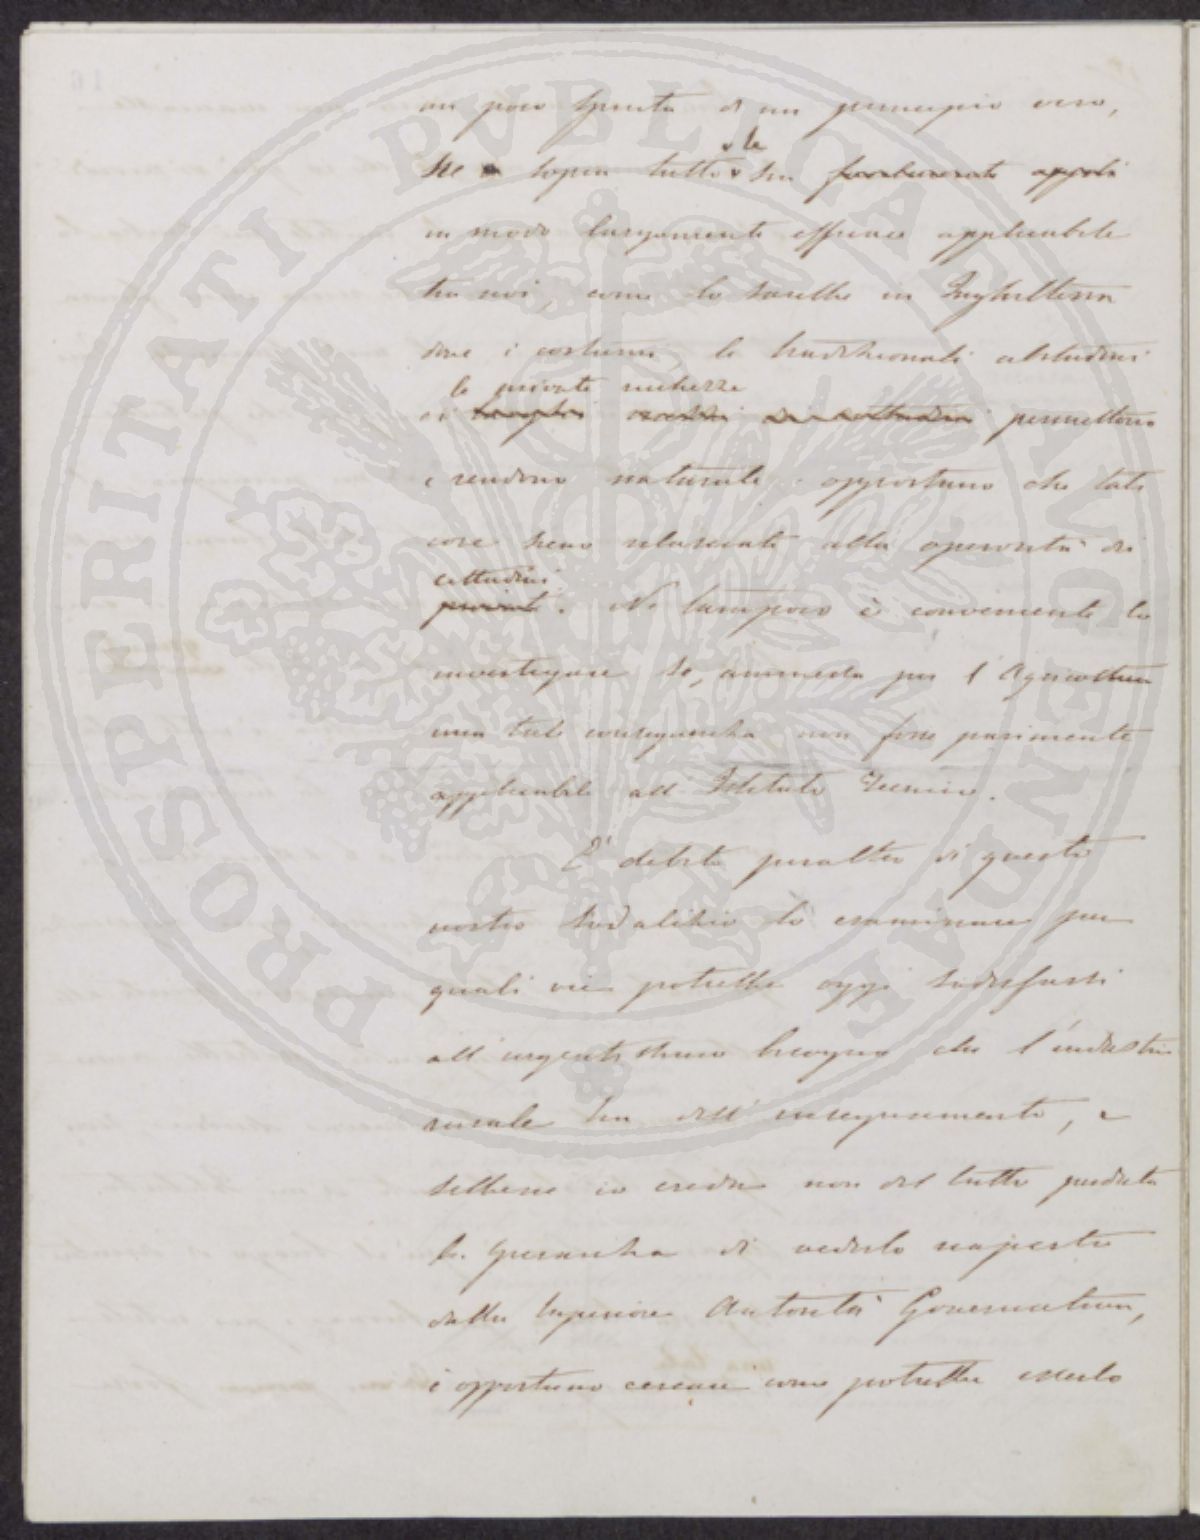 un poco spinta di un principio vero,
se sopra tutto se sia
in modo largamente efficace applicabile
tra noi, come lo sarebbe in Inghilterra
dove i costumi, le tradizionali abitudini
le private richezze
ed permettono
e rendono naturale e opportuno che tali
cose sieno rilasciate alla operosità dei
cittadini
privati. Nè tampoco è conveniente lo
investigare se, ammessa per l'Agricoltura
una tale conseguenza non fosse parimente
applicabile all'Istituto Tecnico.
E' debito peraltro di questo
nostro Sodalizio lo esaminare per
quali vie potrebbe oggi sodisfarsi
all'urgentissimo bisogno che l'industria
rurale ha dell'insegnamento, e
sebbene io creda non del tutto perduta
la speranza di vederlo riaperto
dalla Superiore Autorità Governativa,
è opportuno cercare come potrebbe esserlo
PROSPERITATI PVBLICAE AVGENDAE